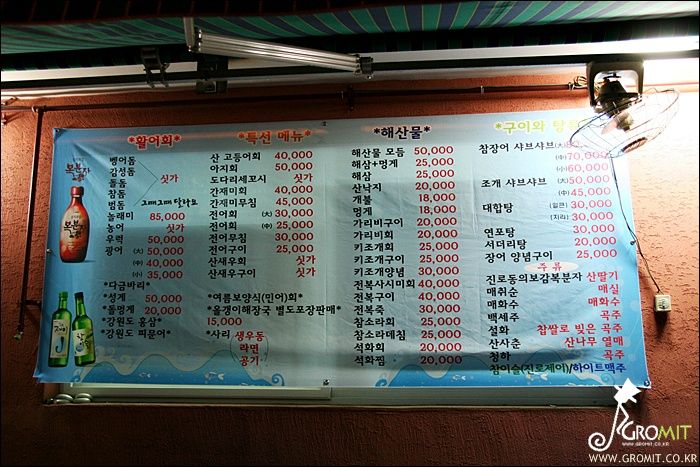 *활어회*
뱅어돔
감성돔
돌돔
참돔
범돔
그때그때 달라요
놀래미 85,000
농어 싯가
우럭 50,000
광어 (大) 50,000
(中) 40,000
(小) 35,000
*다금바리*
*성게 50,000
*돌멍게 20,000
*강원도 홍삼*
*강원도 피문어*
*특선 메뉴*
산 고등어회 40,000
아지회 50,000
도다리세꼬시 싯가
간재미회 40,000
간재미무침 45,000
전어회 (大) 30,000
(中) 25,000
전어무침 30,000
전어구이 25,000
산새우회 싯가
산새우구이 싯가
*여름보양식(민어)회*
*올갱이해장국 별도포장판매*
15,000
*사리 생우동
라면
공기
*해산물*
해산물 모듬 50,000
해삼+멍게 25,000
해삼 25,000
산낙지 20,000
개불 18,000
멍게 18,000
가리비구이 20,000
가리비회 20,000
키조개회 25,000
키조개구이 25,000
키조개양념 30,000
전복사시미회 40,000
전복구이 40,000
전복죽 30,000
참소라회 25,000
참소라데침 25,000
석화회 20,000
석화찜 20,000
*구이와 탕
참장어 샤브샤브 (大)
(中) 70,000
(小) 60,000
조개 샤브샤브 (大) 50,000
(中) 45,000
대합탕 (얼큰) 30,000
(지리) 30,000
연포탕 30,000
서더리탕 20,000
장어 양념구이 25,000
*주류*
진로동의보감복분자 산딸기
매취순 매실
매화수 매화수
백세주 곡주
설화 찹쌀로 빚은 곡주
산사춘 산나무 열매
청하 곡주
참이슬(진로제어)/하이트맥주
복분자
GROMIT
WWW.GROMIT.CO.KR
WWW.GROMIT.CO.KR